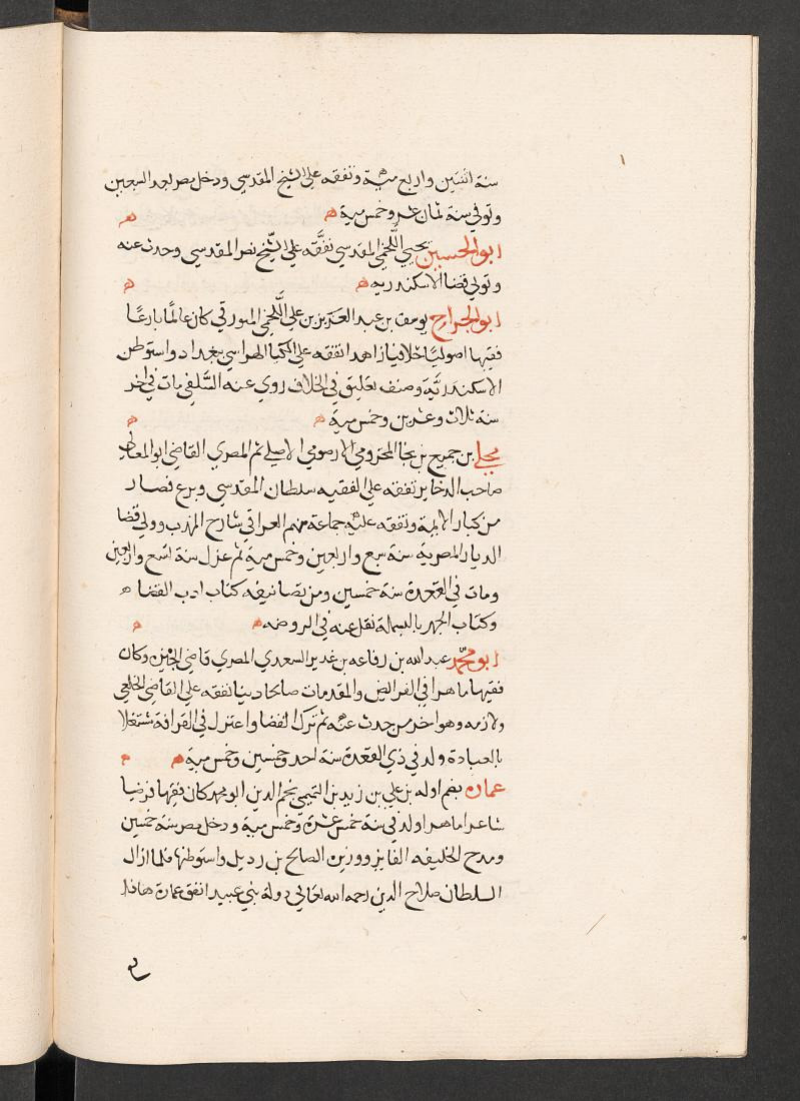 سنة اثنتين واربع مية وتفقه على الشيخ المقدسي ودخل مصر لعد السبعين
وتوفي سنة ثمان عشر وخمس مية ه ه
ابو الحسين يحيي اللخمي المقدسي تفقه على الشيخ نصر المقدسي وحدث عنه
وتولي قضا الاسكندريه ه ه
ابو الحجاج يوسف بن عبد العزيز بن علي اللخمي الميورقي كان عالما بارعا
فقيها اصوليا خلافيا زاهدا تفقه على الكيا الهراسي ببغداد واستوطن
الاسكندرية وصنف تعليق في الخلاف روي عنه السلفي مات في اخر
سنة ثلاث وعشرين وخمس مية ه ه
مجلي بن جميع بن نجا المخزومي الارسوفي الاصلي ثم المصري القاضي ابو المعالي
صاحب الدخاير تفقه على الفقيه سلطان المقدسي وبرع فصار
من كبار الايمة وتفقه عليه جماعة منهم العراقي شارح المهذب وولي قضا
الديار المصرية سنة سبع واربعين وخمس مية ثم عزل سنة تسع واربعين
ومات في القعدة سنة خمسين ومن تصانيفه كتاب ادب القضا ه
وكتاب الجهر بالبسملة نقل عنه في الروضه ه ه
ابو محمد عبد الله بن رفاعه بن غدير السعدي المصري قاضي الجيزة وكان
فقيها ماهرا في الفرائض والمقدمات صالحا دينا تفقه على القاضي الخلعي
ولازمه وهو اخر من حدث عنه ثم ترك القضا واعتزل في القرافة مشتغلا
بالعبادة ولد في ذي القعدة سنة احد وخمسين وخمس مية ه ه
عماره بن علي بن زيد بن التميمي نجم الدين ابو محمد كان فقيها فرضيا
شاعرا ماهرا ولد في سنة خمس عشرة وخمس مية ودخل مصر سنة خمسين
ومدح الخليفه الفايز ووزيره الصالح بن رديل واستوطنها فلما ازال
السلطان صلاح الدين رحمه الله تعالي دولة بني عبيد اتفق عمارة هذا